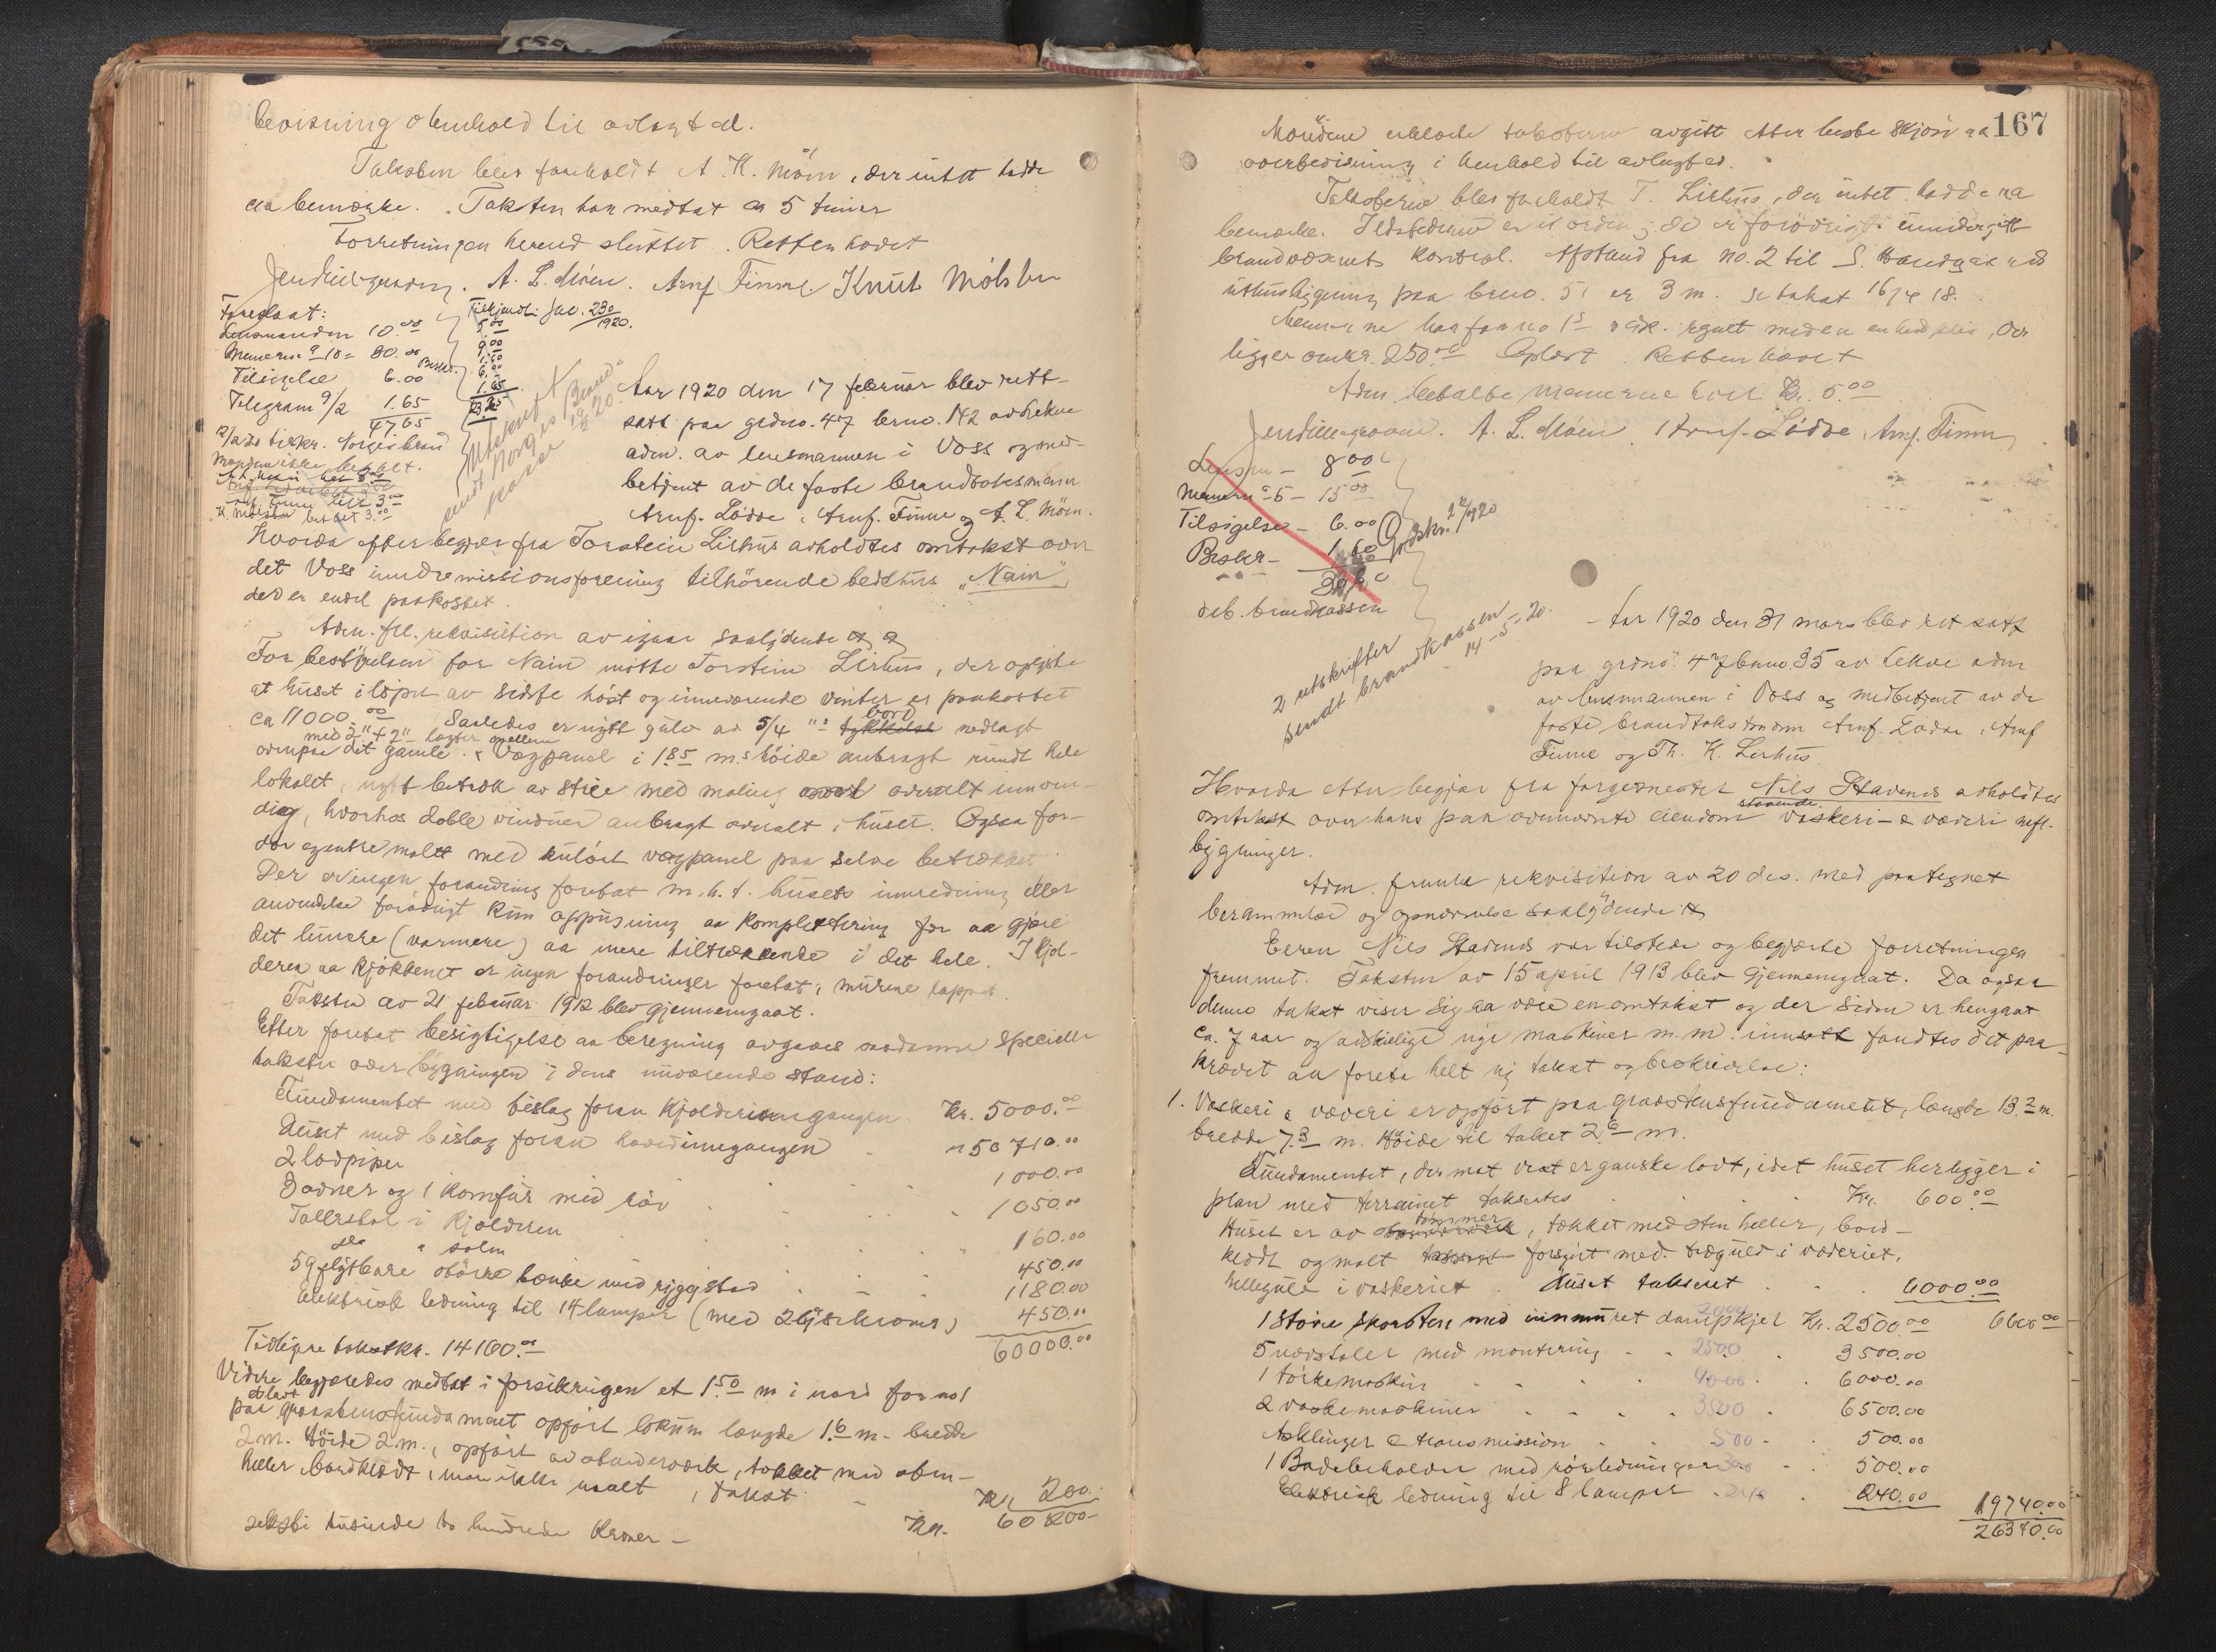 bevisning i henhold til avlagt ed.
Taksten blev foreholdt A. K. Møen, der intet hadde
aa bemerke. Taksten har medtat ca 5 timer
Forretningen hermed sluttet. Retten hævet
A. L. Møen. Arnf Finne Knut Mølster
Foreslaat:
Lensmanden 10.00
Mennerne a 10 = 30.00
Tilsigelse 6.00
Telegram 9/2 1.65
47.65
Tilkjendt: Jno. 230/1920.
5.00
9.00
1.60
6.00
1.65
K. Mølster betalt 3.00
Utskrift sendt Norges Brand-
kasse
Aar 1920 den 17 februar blev rett
satt paa grdno. 47 brno. 142 av Lekve
adm. av lensmannen i Voss og med-
betjent av de faste brandtakstmænn
Arnf. Lødve, Arnf. Finne og A. L. Møen.
Hvorda efter begjær fra Torstein Lirhus avholdtes omtakst over
det Voss indremissionsforening tilhørende bedehus "Nain",
der er endel paakostet.
Adm. frl. rekvisition av igaar saalydende
For bestyrelsen for Nain møtte Torstein Lirhus, der oplyste
at huset i løpet av sidste høst og inneværende vinter er paakostet
ca 11000.00 Saaledes er nytt gulv av 5/4 "s bord tykkelse nedlagt
med 2"x2" lægter mellem
ovenpaa det gamle. Vægpanel i 1.85 m.s høide anbragt rundt hele
lokalet, nytt betræk av strie med maling overalt innven-
dig, hvorhos doble vinduer anbragt overalt i huset. Ogsaa for-
der egentre malt med kulørt vægpanel paa selve betrækket
Der er ingen forandring foretat m.h.t. husets innredning eller
anvendelse forøvrigt kun oppusning aa komplettering for aa gjøre
det lunere (varmere) aa mere tiltrækkende i det hele. I kjel-
deren aa kjøkkenet er ingen forandringer foretat, murene lappet.
Taksten av 21 februar 1912 blev gjennemgaat.
Efter foretat besigtigelse aa beregning avgaves saadanne specielle
takster over bygningen i dens nuværende stand:
Fundamentet med bislag foran kjelderinngangen Kr. 5000.00
Huset med bislag foran hovedinngangen " 50710.00
2 lodpiper 1000.00
3 ovner og 1 komfur med rør 1050.00
Tallerstol i kjelderen 160.00
do " salen 450.00
59 flytbare større bænke med ryggstød 1180.00
Elektrisk ledning til 14 lamper (med 2 lyskroner) 450.00
60000.00
Tidligere takst kr. 14100.00
Videre begjæredes medtat i forsikringen et 1.50 m i nord for no 1
paa graastensfundament opført lokum længde 1.6 m. bredde
2 m. Høide 2 m., opført av stenderværk, tækket med sten-
heller, bordklædt, malt, takst Kr. 200.
seksti tusinde to hundrede Kroner - Kr. 60200-
167
Mændene erklærte taksterne avgitt etter beste skjøn aa
overbevisning i henhold til avlagt ed.
Taksterne blev foreholdt T. Lirhus, der intet hadde aa
bemerke. Ildstederne er i orden, de er forøvrigt undergitt
brandvæsenets kontrol. Afstand fra no. 2 til S. Haugen
uthusbygning paa brno. 51 er 3 m.
ligger omkr. 250.00 Oplæst. Retten hævet
Adm. betalte mennerne hver Kr. 5.00
A. L. Møen. Arnf. Lødve. Arnf. Finne
Lensm - 8.00
Mennerne a 5 - 15.00
Tilsigelse - 6.00
Beskr - 1.60
deb. brandkassen
2 utskrifter
sendt brandkassen
14-5-20.
Aar 1920 den 31 mars blev ret satt
paa grdno. 47 brno 35 av Lekve adm
av lensmannen i Voss og medbetjent av de
faste brandtakstmænn Arnf. Lødve, Arnf
Finne og Th. K. Lirhus
Hvorda etter begjær fra fargemester Nils Stavenes avholdtes
omtakst over hans paa ovennævnte eiendom staaende vaskeri- & væveri m.fl.
bygninger.
Adm. fremla rekvisition av 20 ds. med paategnet
berammelse og opnævnelse saalydende
Eieren Nils Stavenes var tilstede og begjærte forretningen
fremmet. Taksten av 15 april 1913 blev gjennemgaat. Da ogsaa
denne takst viser sig aa være en omtakst og der siden er hengaat
ca. 7 aar og adskillige nye maskiner m.m. innsatt fandtes det paa-
krævet aa foreta helt ny takst og beskrivelse:
1. Vaskeri & væveri er opført paa graastensfundament, længde 13.2 m.
bredde 7.3 m. Høide til taket 2.6 m.
Fundamentet, der mot vest er ganske lavt, idet huset her ligger i
plan med terrainet takseres Kr. 600.00
Huset er av tømmer, tækket med sten heller, bord-
klædt og malt forsynt med trægulv i væveriet,
hellegulv i vaskeriet. Huset takseret 6000.00
6600.00
1 større skorsten med innmuret dampkjel 2000 Kr. 2500.00
5 vævstoler med montering 2500 3500.00
1 tørkemaskin 4000 6000.00
2 vaskemaskiner 3500 6500.00
Akslinger & transmission 500 500.00
1 Badebeholder med rørledninger 300 500.00
Elektrisk ledning til 8 lamper 240 240.00
19740.00
26340.00